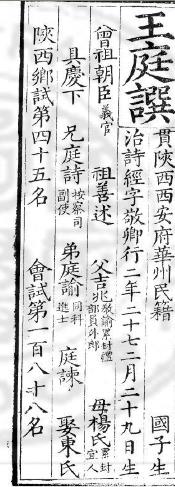 王庭譔
貫陝西西安府華州民籍 國子生
治詩經字敬卿行二年二十七二月二十九日生
曾祖朝臣義官 祖善述 父吉兆教諭累封禮部員外郎 母楊氏累封宜人
具慶下 兄庭詩按察司副使 弟庭諭同科進士 庭諫 娶東氏
陝西鄉試第四十五名 會試第一百八十八名